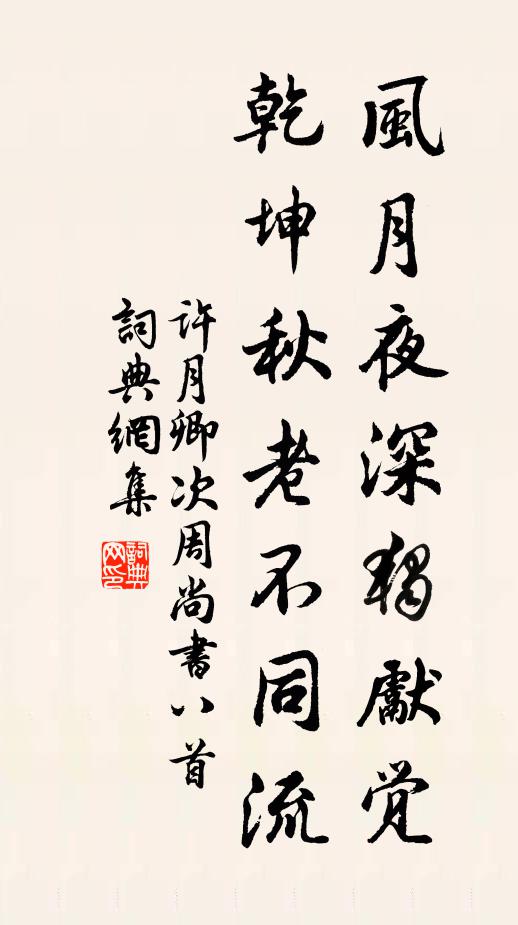 風月夜深獨獻覚
乾坤秋老不同流
许月卿次周尚書八首
詞典網集
詞典网印